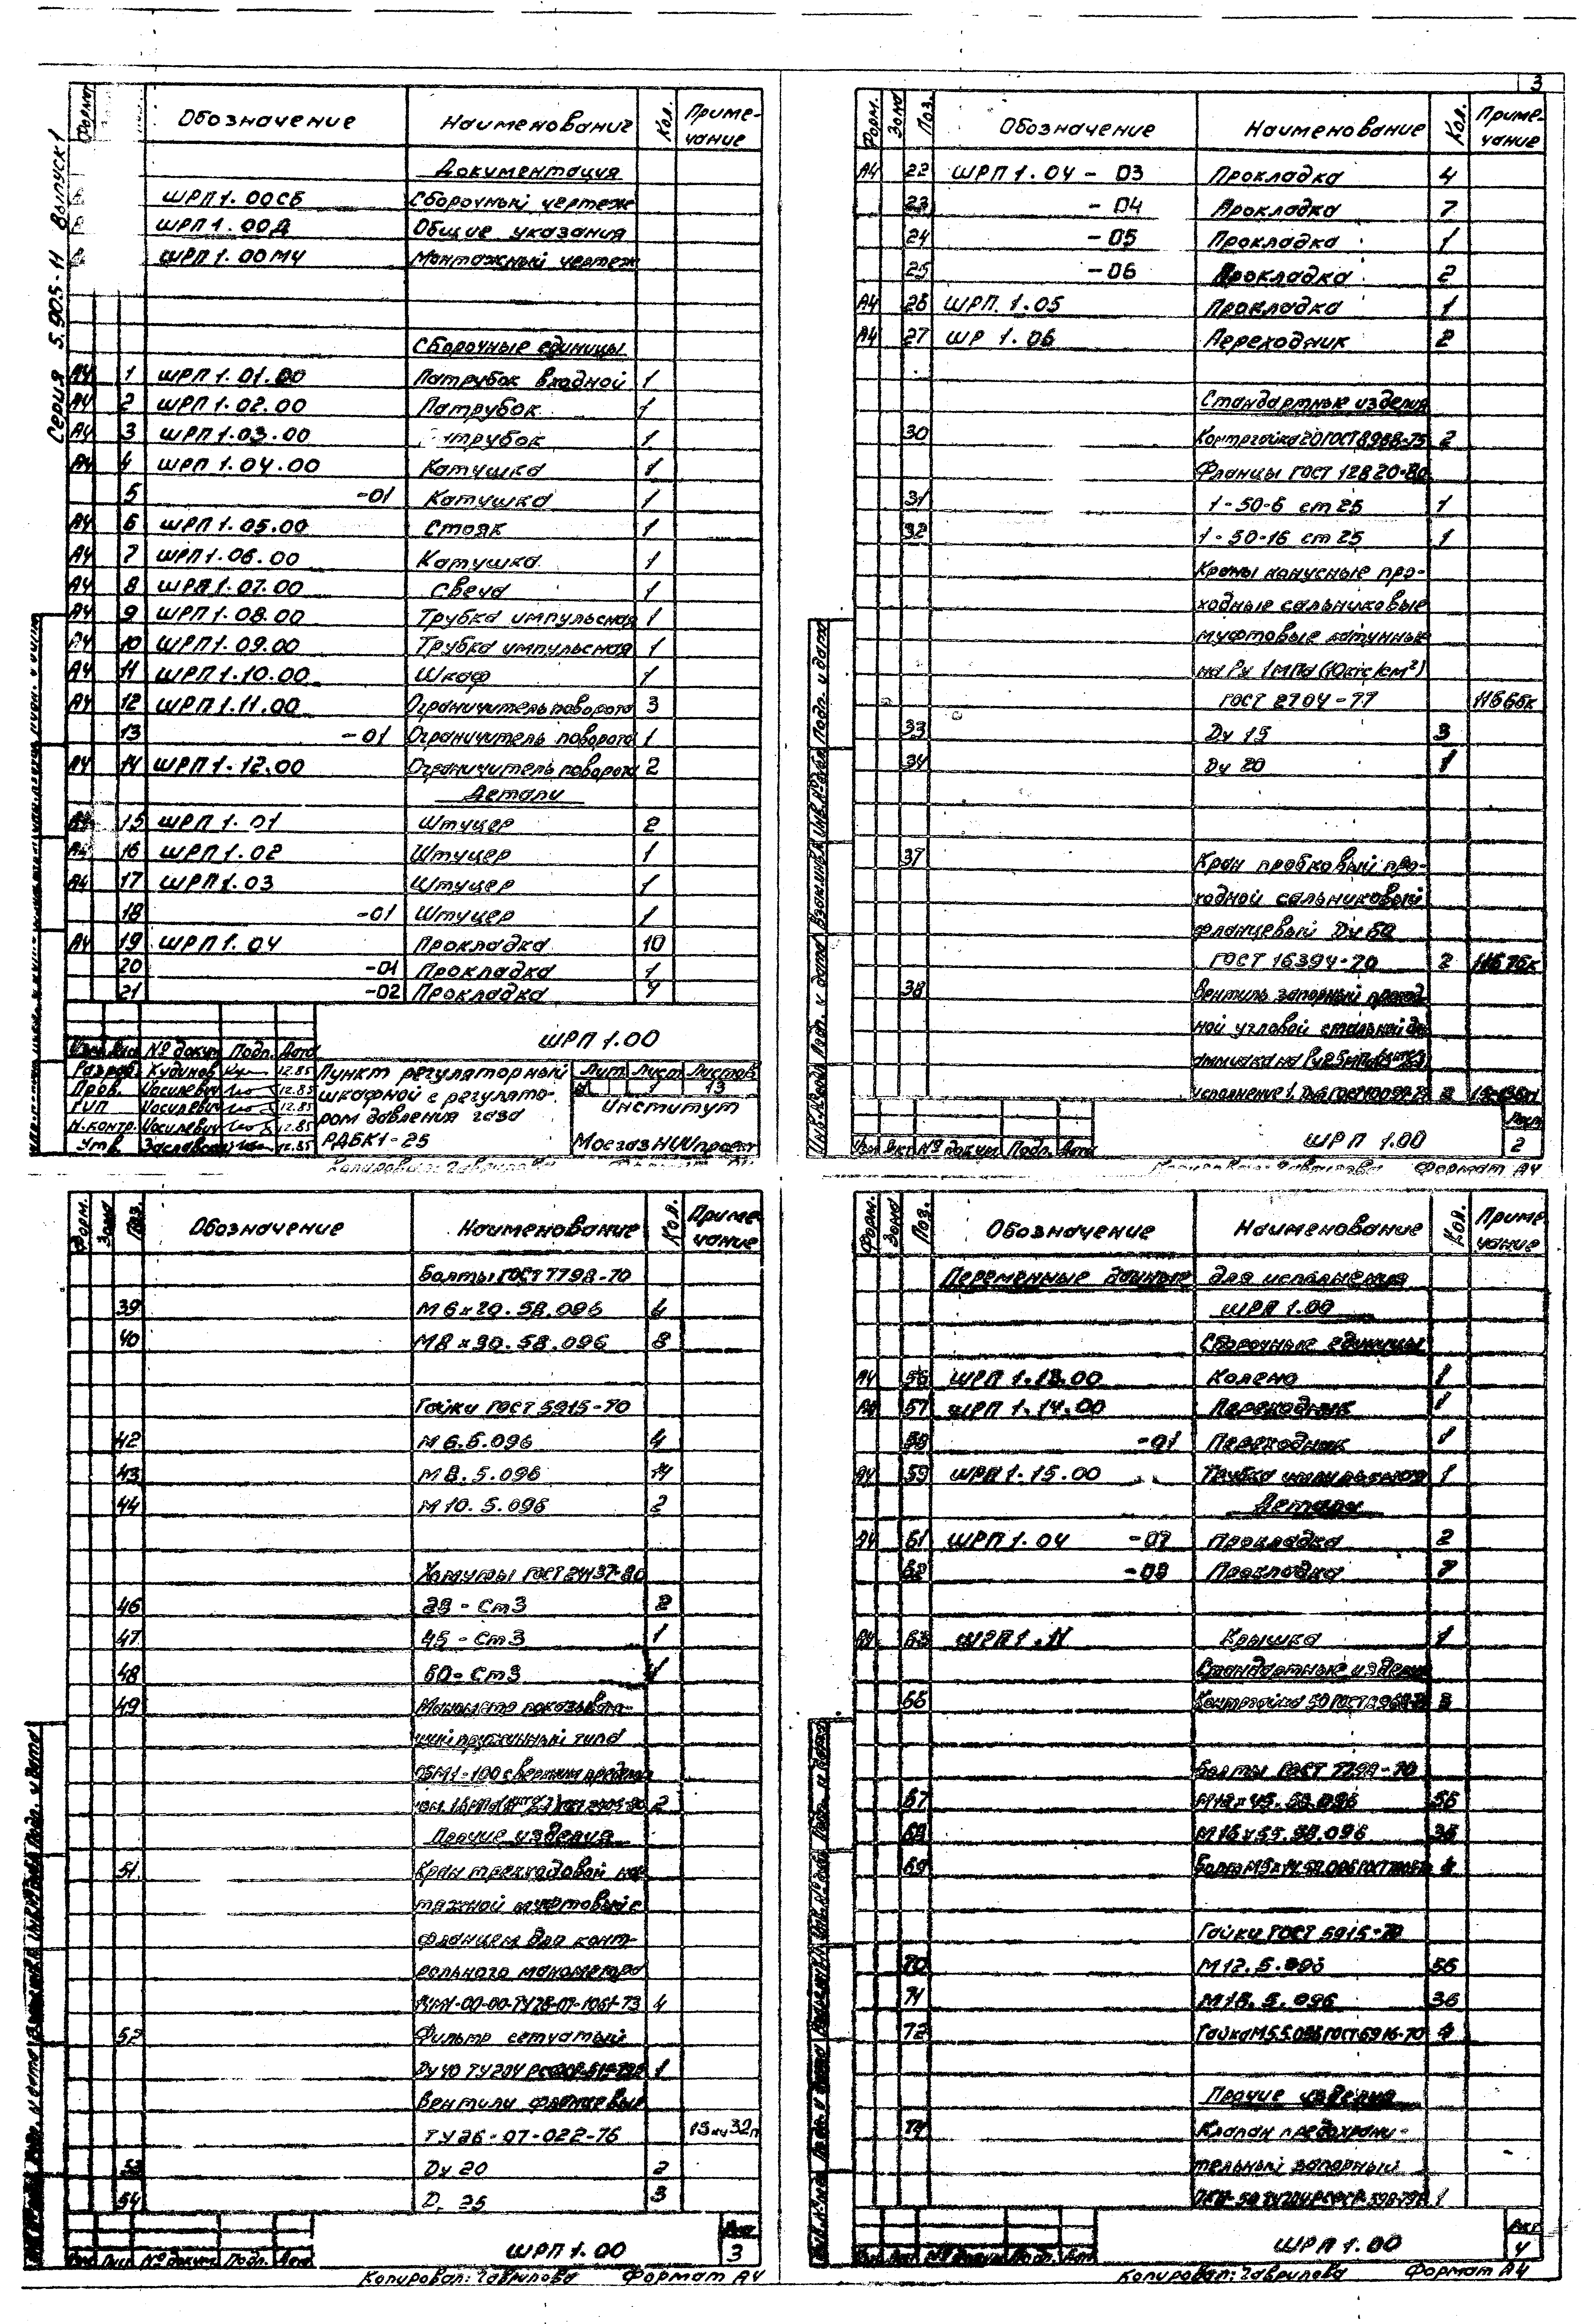 3
Серия 5.905-11 Выпуск 1
Формат Обозначение Наименование Кол. Примечание
Документация
ШРП 1.00СБ Сборочный чертеж
ШРП 1.00Д Общие указания
ШРП 1.00МЧ Монтажный чертеж
Сборочные единицы
А4 1 ШРП 1.01.00 Патрубок входной 1
А4 2 ШРП 1.02.00 Патрубок 1
А4 3 ШРП 1.03.00 трубок 1
А4 4 ШРП 1.04.00 Катушка 1
5 -01 Катушка 1
А4 6 ШРП 1.05.00 Стояк 1
А4 7 ШРП 1.06.00 Катушка 1
А4 8 ШРП 1.07.00 Свеча 1
А4 9 ШРП 1.08.00 Трубка импульсная 1
А4 10 ШРП 1.09.00 Трубка импульсная 1
А4 11 ШРП 1.10.00 Шкаф 1
А4 12 ШРП 1.11.00 Ограничитель поворота 3
13 -01 Ограничитель поворота 1
А4 14 ШРП 1.12.00 Ограничитель поворота 2
Детали
А4 15 ШРП 1.01 Штуцер 2
А4 16 ШРП 1.02 Штуцер 1
А4 17 ШРП 1.03 Штуцер 1
18 -01 Штуцер 1
А4 19 ШРП 1.04 Прокладка 10
20 -01 Прокладка 1
21 -02 Прокладка
ШРП 1.00
Изм Лист № докум Подп. Дата
Разраб. Кудинов 12.85
Пров. Иосилевич 12.85
ГИП Иосилевич 12.85
Н.контр. Иосилевич 12.85
Утв. 12.85
Пункт регуляторный
шкафной с регулято-
ром давления газа
РДБК1-25
Лит. Лист Листов
1 13
Институт
МосгазНИИпроект
Копировал: Гаврилова Формат А4
Форм. Зона Поз. Обозначение Наименование Кол. Примечание
А4 22 ШРП 1.04-03 Прокладка 4
23 -04 Прокладка 7
24 -05 Прокладка 1
25 -06 Прокладка 2
А4 26 ШРП 1.05 Прокладка 1
А4 27 ШР 1.06 Переходник 2
Стандартные изделия
30 Контргайка 20 ГОСТ 8968-75 2
Фланцы ГОСТ 12820-80
31 1-50-6 ст 25 1
32 1-50-16 ст 25 1
Краны конусные про-
ходные сальниковые
муфтовые латунные
на Ру 1МПа (10кгс/см²)
ГОСТ 2704-77 11Б6бк
33 Ду 15 3
34 Ду 20 1
37 Кран пробковый про-
ходной сальниковый
фланцевый Ду 50
ГОСТ 16394-70 2 11Б7бк
38 Вентиль запорный проход-
ной угловой стальной дл
аммиака на Ру
исполнение 1
Подп. и дата
Изм Лист № докум Подп. Дата
ШРП 1.00
Лист
2
Формат А4
Форм. Зона Поз. Обозначение Наименование Кол. Примечание
Болты ГОСТ 7798-70
39 М6х20.58.096 4
40 М8х90.58.096 8
Гайки ГОСТ 5915-70
42 М6.5.096 4
43 М8.5.096 14
44 М10.5.096 2
Хомуты ГОСТ 24137-80
46 - Ст3 2
47 45 - Ст3 1
48 60 - Ст3
49 Манометр показываю-
щий пружинный типа
ОБМ1-100 с верхним пределом
2
Прочие изделия
51 Кран трехходовой на-
тяжной муфтовый с
фланцем для конт-
рольного манометра
4
52 Фильтр сетчатый
Ду 40 ТУ204 РСФСР 1
Вентили фланцевые
ТУ26-07-022-76
53 Ду 20 2
54 Д 25 3
№ докум. Подп. Дата
ШРП 1.00
Лист
3
Копировал: Гаврилова Формат А4
Форм. Зона Поз. Обозначение Наименование Кол. Примечание
Переменные данные для исполнения
ШРП 1.00
Сборочные единицы
А4 56 ШРП 1.13.00 Колено 1
А4 57 ШРП 1.14.00 Переходник 1
58 -01 Переходник 1
А4 59 ШРП 1.15.00 Трубка импульсная 1
Детали
А4 61 ШРП 1.04 -07 Прокладка 2
62 -08 Прокладка
А4 63 ШРП 1.11 Крышка 1
Стандартные изделия
66 Контргайка 50 ГОСТ 3
Болты ГОСТ 7798-70
67 М12х45.58.096 56
68 М16х55.58.096 36
69 Болт
Гайки ГОСТ 5915-70
70 М12.5.096 56
71 М16.5.096 36
72 Гайка М5.5.096 ГОСТ 5916-70 4
Прочие изделия
74 Клапан предохрани-
тельный запорный
1
ШРП 1.00
Лист
4
Копировал: Гаврилова Формат А4